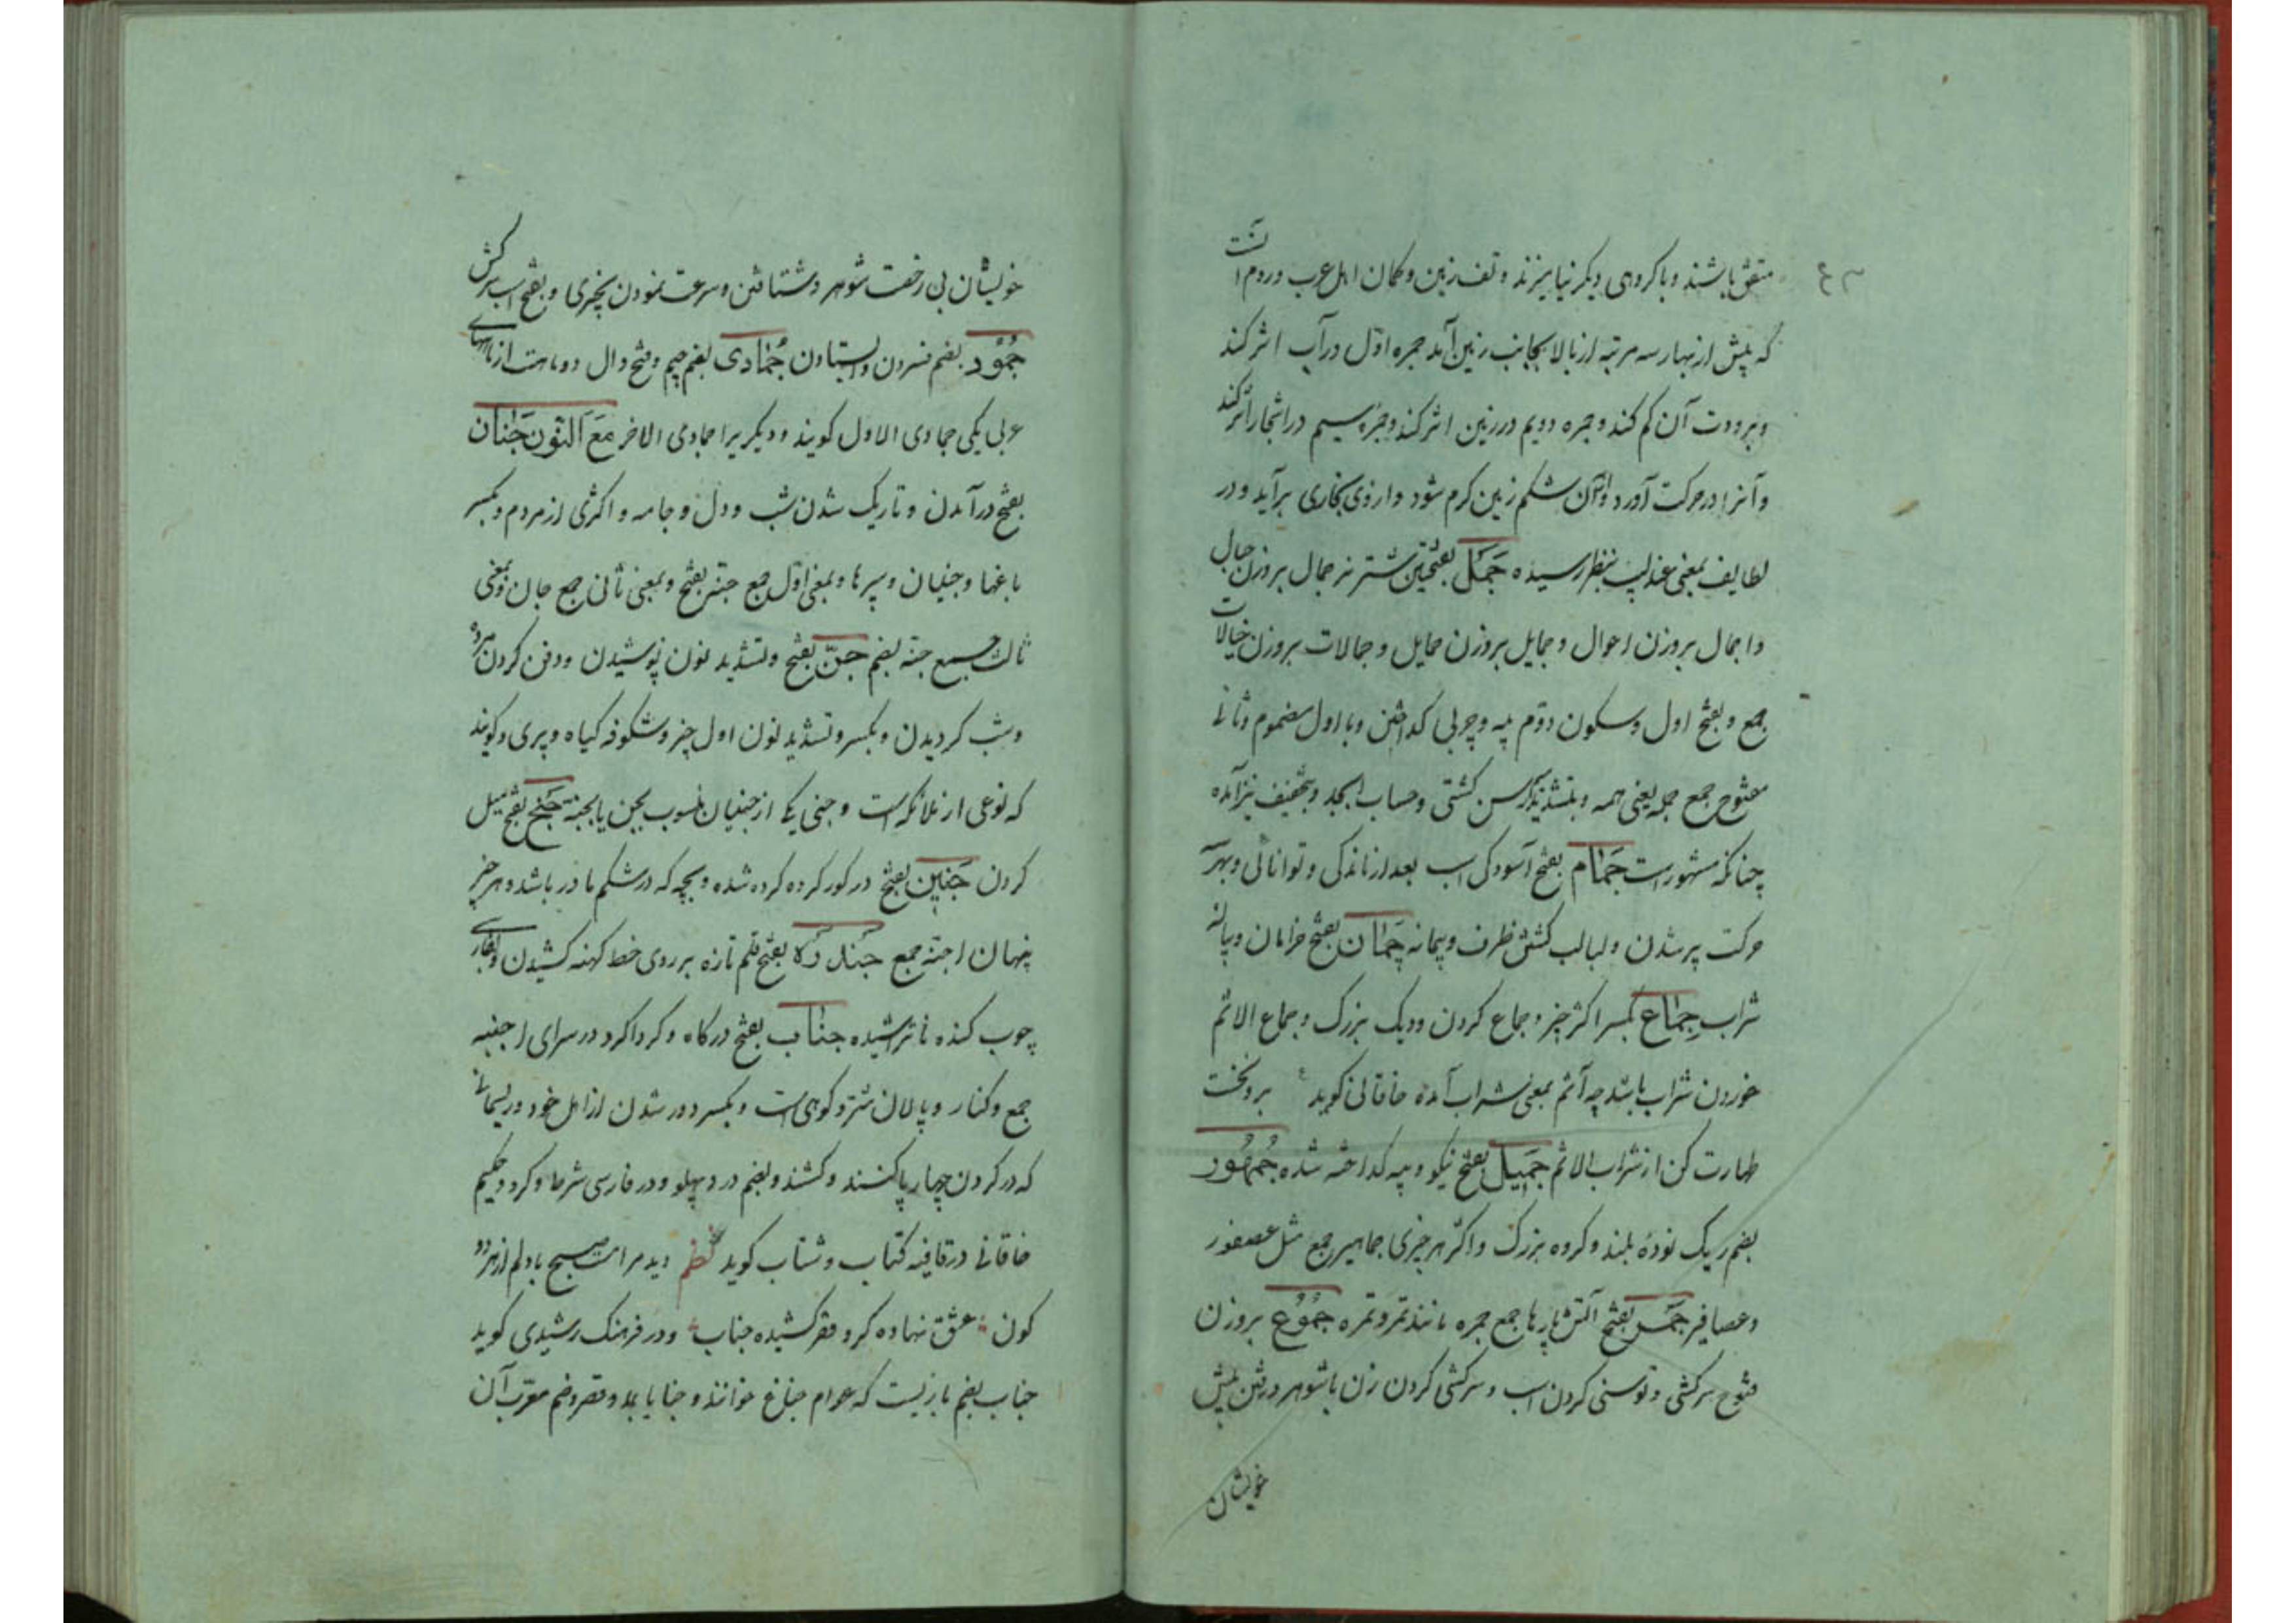 متفق باشند و با کروهی دیکر نیامیزند و تف زمین و کمان اهل عرب و روم آنست
که پیش از بهار سه مرتبه از بالا بجانب زمین آمد جمره اول در آب اثر کند
و برودت آن کم کند و جمره دویم در زمین اثر کند و جمره سیم در اشجار اثر کند
و آنرا در حرکت آورد و از آن شکم زمین کرم شود و از وی بخاری برآید و در
لطایف بمعنی عندلیب بنظر رسیده جَمَل بفتحتین شتر نر جمال بروزن جبال
و اجمال بروزن احوال و جمایل بروزن حمایل و جمالات بروزن خیالات
جمع و بفتح اول و سکون دوم پیه و چربی کداختن و با اول مضموم و ثانی
مفتوح جمع جمله یعنی همه و بتشدید رسن کشتی و حساب ابجد و بتخفیف نیز آمده
چنانکه مشهور است جَمام بفتح آسودکی اسب بعد از ماندکی و توانائی و بهر
حرکت پر شدن و لبالب کشتن ظرف و پیمانه چَمان بفتح خرامان و پیاله
شراب جِماع بکسر اکثر چیز و جماع کردن و دیک بزرک و جماع الاثم
خوردن شراب باشد چه اثم بمعنی شراب آمده خاقانی کوید ع برو نخست
طهارت کن از شراب الاثم جَمیل بفتح نیکو و پیه کداخته شده جُمهُور
بضم ریک توده بلند و کروه بزرک و اکثر هر چیزی جماهیر جمع مثل عصفور
و عصافیر جَمر بفتح آتش پارها جمع جمره مانند تمر و تمره جُمُوع بروزن
فتوح سرکشی و توسنی کردن اسب و سرکشی کردن زن با شوهر و رفتن پیش
خویشان
خویشان بی رخصت شوهر و شتافتن و سرعت نمودن بچیزی و بفتح اسب سرکش
جُمُود بضم فسردن و ایستادن جُمادی بضم جیم و فتح دال دو ماهست از ماههای
عربی یکی جمادی الاول کویند و دیکریرا جمادی الاخر مَعَ النّون جَنان
بفتح درآمدن و تاریک شدن شب و دل و جامه و اکثری از مردم و بکسر
باغها و جنیان و سپرها و بمعنی اول جمع جنة بفتح و بمعنی ثانی جمع جان و بمعنی
ثالث جمع جنه بضم جَنّ بفتح و تشدید نون پوشیدن و دفن کردن مرده
و شب کردیدن و بکسر و تشدید نون اول چیز و شکوفه کیاه و پری و کویند
که نوعی از ملائکه است و جنی یکی از جنیان منسوب بجن یا بجنة جَنح بفتح میل
کردن جَنین بفتح در کور کرده کرده شده و بچه که در شکم مادر باشد و هر چیز
پنهان اجنه جمع جَندَرَه بفتح قلم تازه بر روی خط کهنه کشیدن
چوب کنده ناتراشیده جناب بفتح درکاه و کرداکرد در سرای اجنبه
جمع و کنار و پالان شتر و کوهی است و بکسر دور شدن از اهل خود و ریسمانی
که در کردن چهارپا کنند و کشند و بضم درد پهلو و در فارسی شرط و کرو و حکیم
خاقانی در قافیه کتاب و شتاب کوید نظم دید مرا مست صبح با دلم از هر دو
کون عشق نهاده کرو فقر کشیده جناب و در فرهنک رشیدی کوید
جناب بضم بازیست که عوام جناغ خوانند و جنابا بمد و قصر و ضم معرب آن